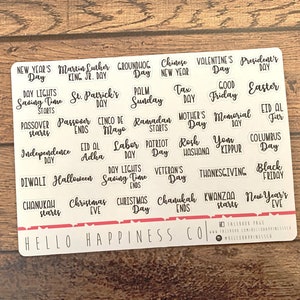 NEW YEAR'S Day
Martin Luther KING JR. DAY
GROUNDHOG Day
Chinese NEW YEAR
VALENTINE'S Day
President's DAY
DAY LIGHTS Saving Time STARTS
St. Patrick's DAY
PALM Sunday
Tax DAY
GOOD Friday
Easter
PASSOVER STARTS
Passover ENDS
CINCO DE Mayo
Ramadan STARTS
MOTHER'S Day
Memorial DAY
EID AL Fitr
Independence DAY
EID AL Adha
Labor DAY
PATRIOT Day
Rosh HASHANA
Yom KIPPUR
COLUMBUS Day
DIWALI
Halloween
DAY LIGHTS Saving Time ENDS
VETERAN'S Day
THANKSGIVING
BLACK Friday
CHANUKAH STARTS
Christmas EVE
CHRISTMAS Day
Chanukah ENDS
KWANZAA STARTS
New Year's EVE
HELLO HAPPINESS CO
FACEBOOK PAGE